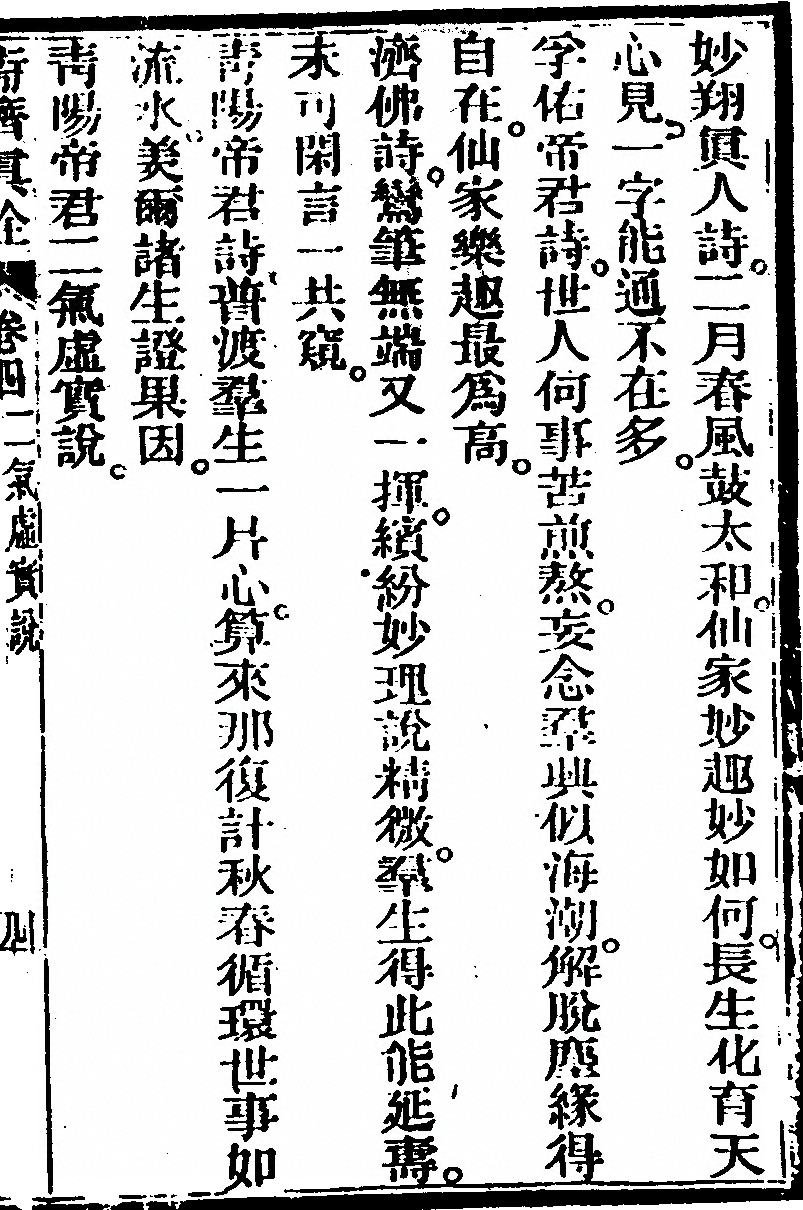 妙翔眞人詩。二月春風鼓太和。仙家妙趣妙如何。長生化育天
心見。一字能通不在多。
孚佑帝君詩。世人何事苦煎熬。妄念羣興似海潮。解脫塵緣得
自在。仙家樂趣最爲高。
濟佛詩。鸞筆無端又一揮。繽紛妙理說精微。羣生得此能延壽。
未可閑言一共窺。
靑陽帝君詩。普渡羣生一片心。算來那復計秋春循環世事如
流水。羙爾諸生證果因。
靑陽帝君二氣虛實說。
卷四 二氣虛實說 四